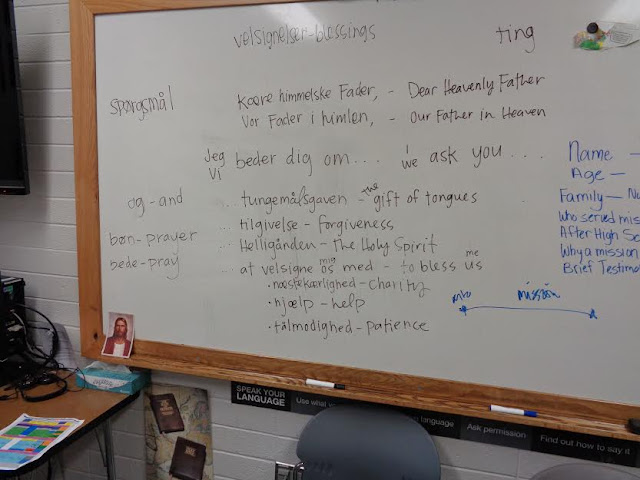 velsignelser-blessings
ting
spørgsmål
Kære himmelske Fader, - Dear Heavenly Father
Vor Fader i himlen, - Our Father in Heaven
Jeg
Vi
beder dig om... I
we ask you...
og-and
... tungemålsgaven - the gift of tongues
... tilgivelse - Forgiveness
bøn-prayer
... Helligånden - The Holy Spirit
bede-pray
mig
me
... at velsigne os med - to bless us
• næstekærlighed - Charity
• hjælp - help
• tålmodighed - patience
Name -
Age -
Family -
Who served
After High
Why a mission
Brief
mission
SPEAK YOUR
LANGUAGE
Use what
language
Ask permission
Find out how to say it